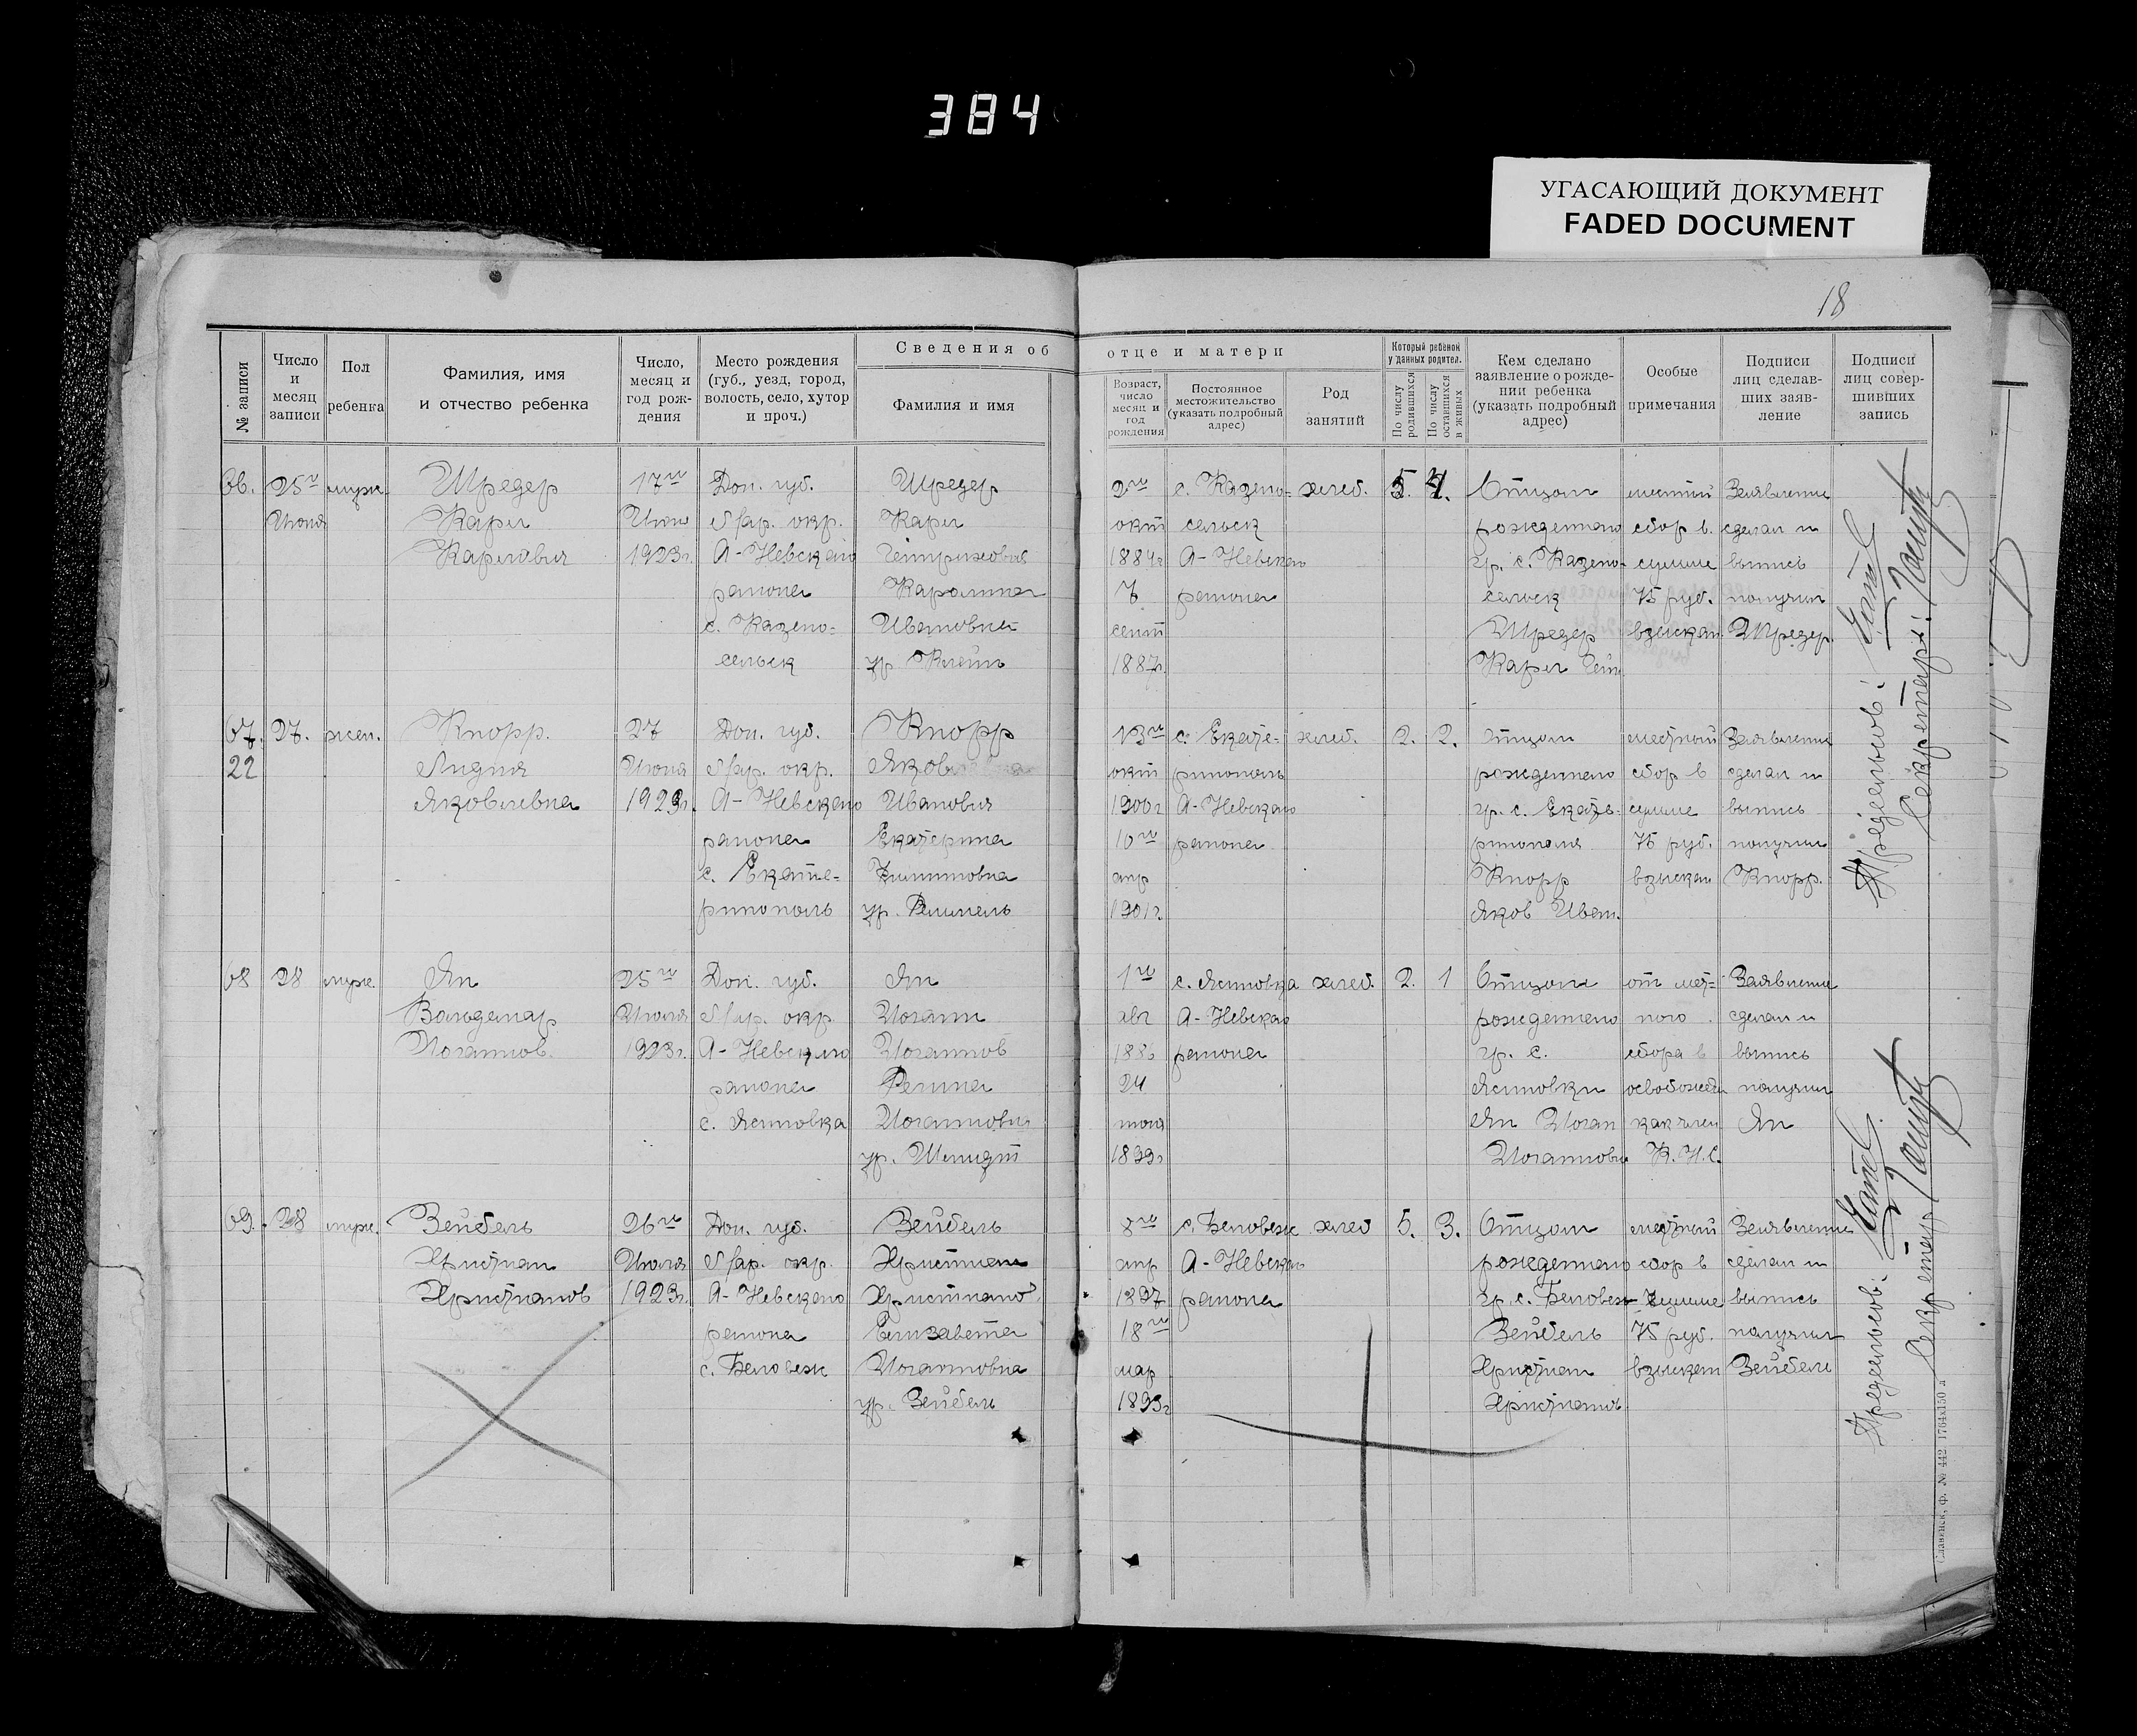 384
УГАСАЮЩИЙ ДОКУМЕНТ
FADED DOCUMENT
18
Сведения об отце и матери
№ записи
Число и месяц записи
Пол ребенка
Фамилия, имя и отчество ребенка
Число, месяц и год рождения
Место рождения (губ., уезд, город, волость, село, хутор и проч.)
Фамилия и имя
Возраст, число месяц и год рождения
Постоянное местожительство (указать подробный адрес)
Род занятий
Который ребенок у данных родител.
По числу родившихся
По числу оставшихся в живых
Кем сделано заявление о рождении ребенка (указать подробный адрес)
Особые примечания
Подписи лиц сделавших заявление
Подписи лиц совершивших запись
66. 25го муж. Шредер 17го Дон. губ. Шредер 2го с. Казено- хлеб. 5. 4. Отцом местный Заявление
Июня Карл Июня Мар. окр. Карл окт сельск рожденного сбор в сделал и
Карлович 1923г. А-Невского 1884г А-Невского гр. с. Казено- сумме выпись
района Каролина 7 района сельск 75 руб. получил
с. Казено- Ивановна сент Шредер взыскан Шредер.
сельск ур. Клейн 1887г. Карл Гейн
67. 27. жен. Кнорр. 27 Дон. губ. Кнорр 13го с. Екате- хлеб. 2. 2. Отцом местный Заявление
22 Лидия Июня Мар. окр. Яков окт ринополь рожденного сбор в сделал и
Яковлевна 1923г. А-Невского Иванович 1900г А-Невского гр. с. Екате- сумме выпись
района Екатерина 10го района ринополя 75 руб. получил
с. Екате- апр Кнорр взыскан Кнорр.
ринополь ур. 1901г. Яков Иван.
68 28 муж. Ян 25го Дон. губ. Ян 1го с. Ясиновка хлеб. 2. 1 Отцом от мест- Заявление
Вольдемар Июля Мар. окр. Иоганн авг А-Невского рожденного ного сделал и
Иоганнов. 1923г. А-Невского Иоганнов 1886 района гр. с. сбора в выпись
района 24 Ясиновки освобожден получил
с. Ясиновка Иоганновна июля Ян Иоган как член Ян
ур. Шмидт 1899г Иоганнович К.Н.С.
69. 28 муж. Зейбель 26го Дон. губ. Зейбель 8го с. Беловеж хлеб 5. 3. Отцом местный Заявление
Христиан Июля Мар. окр. Христиан апр А-Невского рожденного сбор в сделал и
Христианов 1923г. А-Невского Христианов 1897 района гр. с. Беловеж сумме выпись
района Елизавета 18го Зейбель 75 руб. получил
с. Беловеж Иоганновна мар Христиан взыскан Зейбель
ур. Зейбель 1893г Христианов
Секретарь:
Секретарь